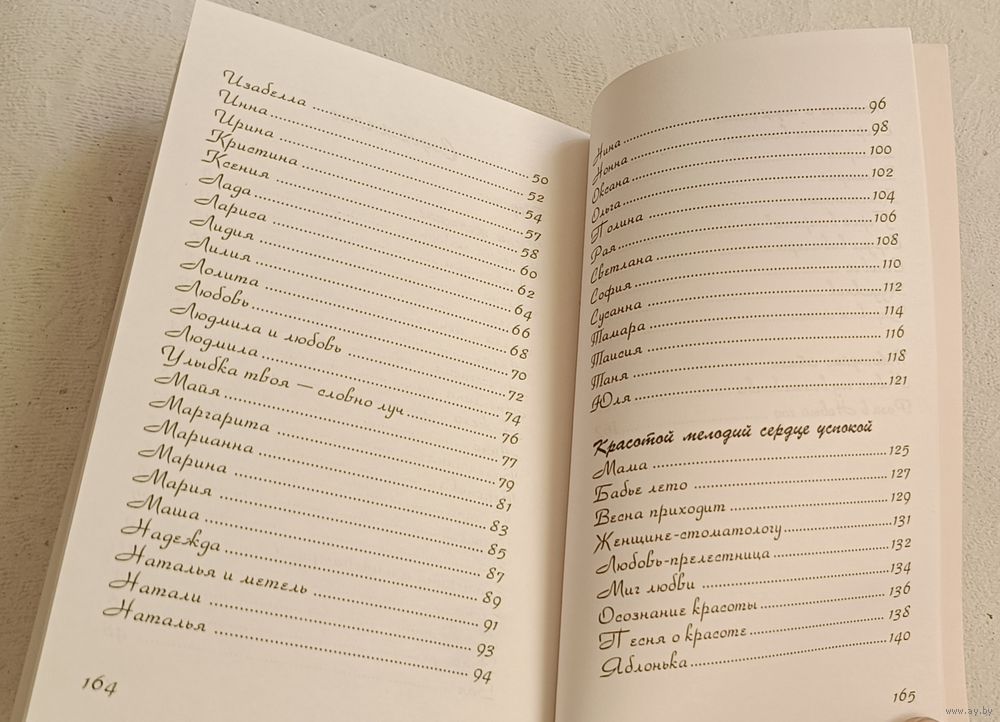 Изабелла ... 50
Инна ... 52
Ирина ... 54
Кристина ... 57
Ксения ... 58
Лада ... 60
Лариса ... 62
Лидия ... 64
Лилия ... 66
Лолита ... 68
Любовь ... 70
Людмила и любовь ... 72
Людмила ... 74
Улыбка твоя — словно луч ... 76
Майя ... 77
Маргарита ... 79
Марианна ... 81
Марина ... 83
Мария ... 85
Маша ... 87
Надежда ... 89
Наталья и метель ... 91
Натали ... 93
Наталья ... 94
164
Нина ... 96
Нонна ... 98
Оксана ... 100
Ольга ... 102
Полина ... 104
Рая ... 106
Светлана ... 108
София ... 110
Сусанна ... 112
Тамара ... 114
Таисия ... 116
Таня ... 118
Юля ... 121
Красотой мелодий сердце успокой
Мама ... 125
Бабье лето ... 127
Весна приходит ... 129
Женщине-стоматологу ... 131
Любовь-прелестница ... 132
Миг любви ... 134
Осознание красоты ... 136
Песня о красоте ... 138
Яблонька ... 140
165
www.ay.by